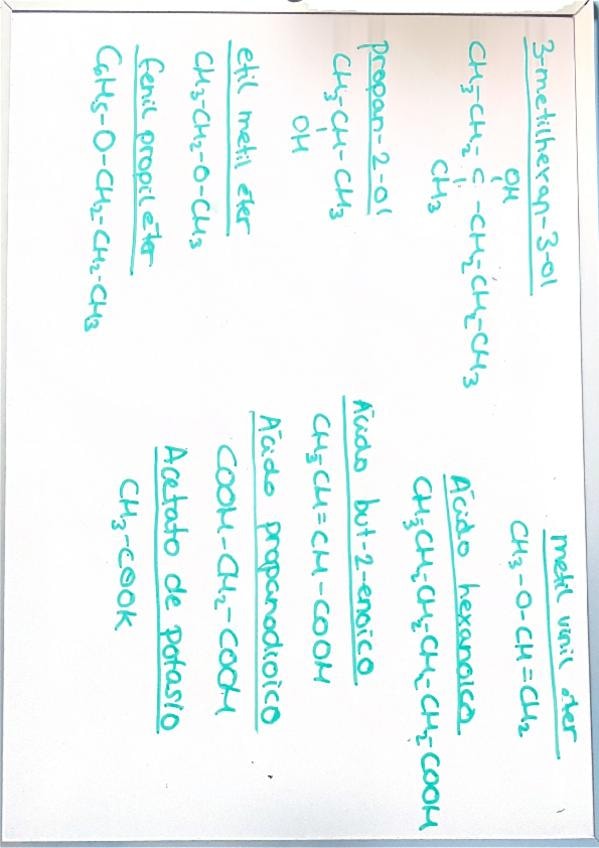 3-metilhexan-3-ol
OH
CH3-CH2-C-CH2-CH2-CH3
CH3
propan-2-ol
CH3-CH-CH3
OH
etil metil éter
CH3-CH2-O-CH3
fenil propil éter
C6H5-O-CH2-CH2-CH3
metil vinil éter
CH3-O-CH=CH2
Ácido hexanoico
CH3-CH2-CH2-CH2-CH2-COOH
Ácido but-2-enoico
CH3-CH=CH-COOH
Ácido propanodioico
COOH-CH2-COOH
Acetato de potasio
CH3-COOK